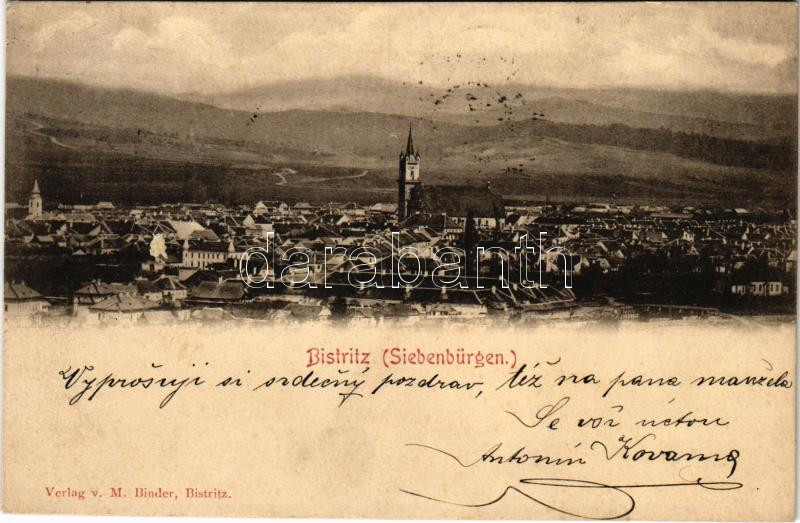 darabanth
Bistritz (Siebenbürgen.)
Vyprošuji si srdečný pozdrav, též na pana manžela
Se vší úctou
Antonín
Verlag v. M. Binder, Bistritz.